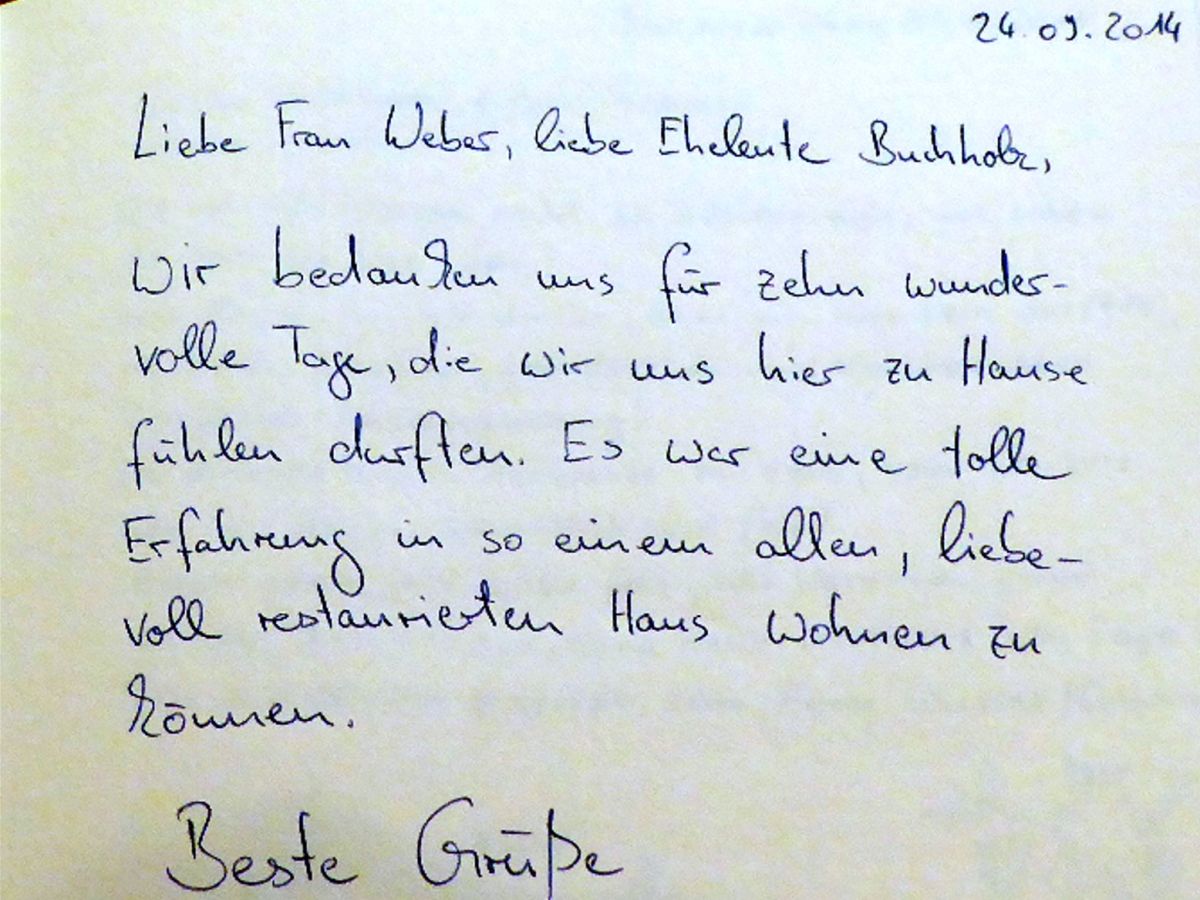 24.09.2014
Liebe Frau Weber, liebe Eheleute Buchholz,
wir bedanken uns für zehn wunder-
volle Tage, die wir uns hier zu Hause
fühlen durften. Es war eine tolle
Erfahrung in so einem alten, liebe-
voll restaurierten Haus wohnen zu
können.
Beste Grüße